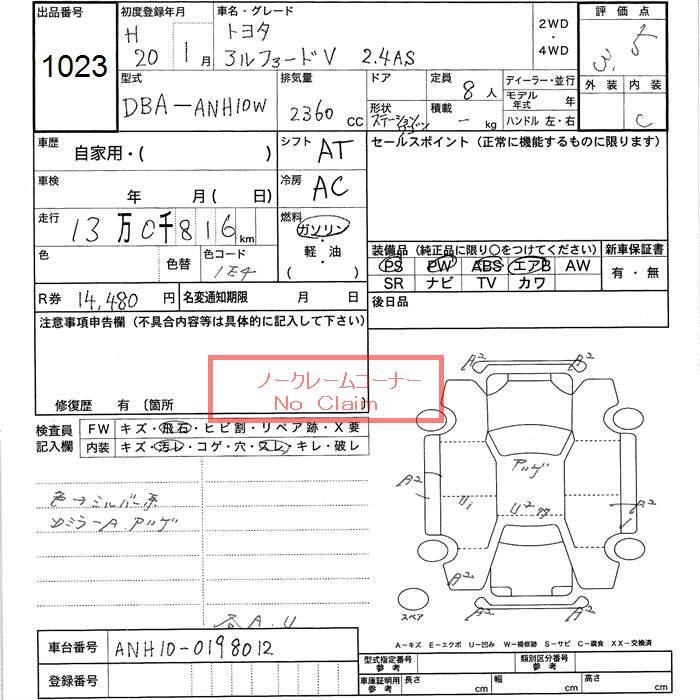 出品番号
1023
初度登録年月
H 20年 1月
車名・グレード
トヨタ
アルファードV 2.4AS
2WD
・
4WD
評価点
3.5
外装 内装
C
型式
DBA-ANH10W
排気量
2360 cc
ドア
定員
8人
形状
ステーションワゴン
積載
- kg
ディーラー・並行
モデル年式 年
ハンドル 左・右
車歴
自家用・( )
シフト
AT
セールスポイント (正常に機能するものに限ります)
車検
年 月( 日)
冷房
AC
走行
13万0千816km
燃料
ガソリン
・
軽・油
( )
色
色替
色コード
1E4
装備品 (純正品に限り○をつけてください)
PS PW ABS エアB AW
SR ナビ TV カワ
新車保証書
有・無
R券 14,480 円
名変通知期限 月 日
後日品
注意事項申告欄 (不具合内容等は具体的に記入して下さい)
ノークレームコーナー
No Claim
修復歴 有 〔箇所
検査員記入欄
FW キズ・飛石・ヒビ割・リペア跡・X要
内装 キズ・汚レ・コゲ・穴・スレ・キレ・破レ
色→シルバー系
Dミラー A アツゲ
各 A.U
A2 A2
アツゲ
A2 A2
U2
A2 A2
スペア
A-キズ E-エクボ U-凹み W-補修跡 S-サビ C-腐食 XX-交換済
車台番号 ANH10-0198012
登録番号
型式指定番号 参考
類別区分番号 参考
車庫証明用 参考
長さ cm
幅 cm
高さ cm